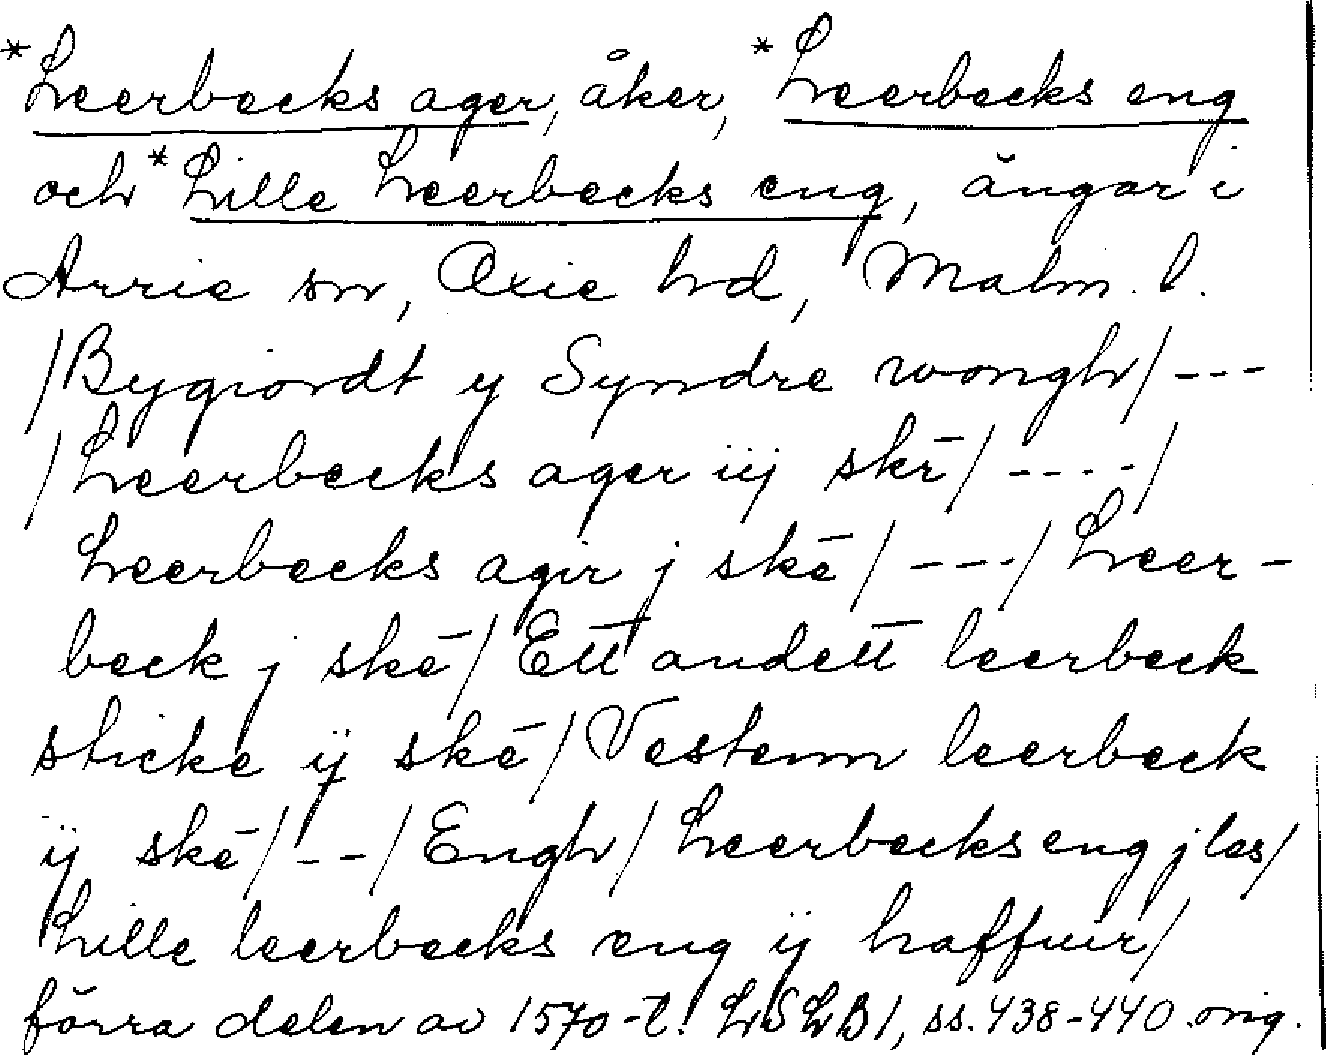 *Leerbecks ager, åker, *Leerbecks eng
och *Lille Leerbecks eng, ängar i
Arrie sn, Oxie hd, Malm. l.
/Bygiordt y Syndre wongh/---
/Leerbecks ager iij skē/----/
Leerbecks agir j skē/---/Leer-
beck j skē/Ett andett leerbeck
sticke ij skē/Vestenn leerbeck
ij skē/--/Engh/Leerbecks eng j les/
Lille leerbecks eng ij haffuir/
förra delen av 1570-t! LSLB1, ss. 438-440. orig.